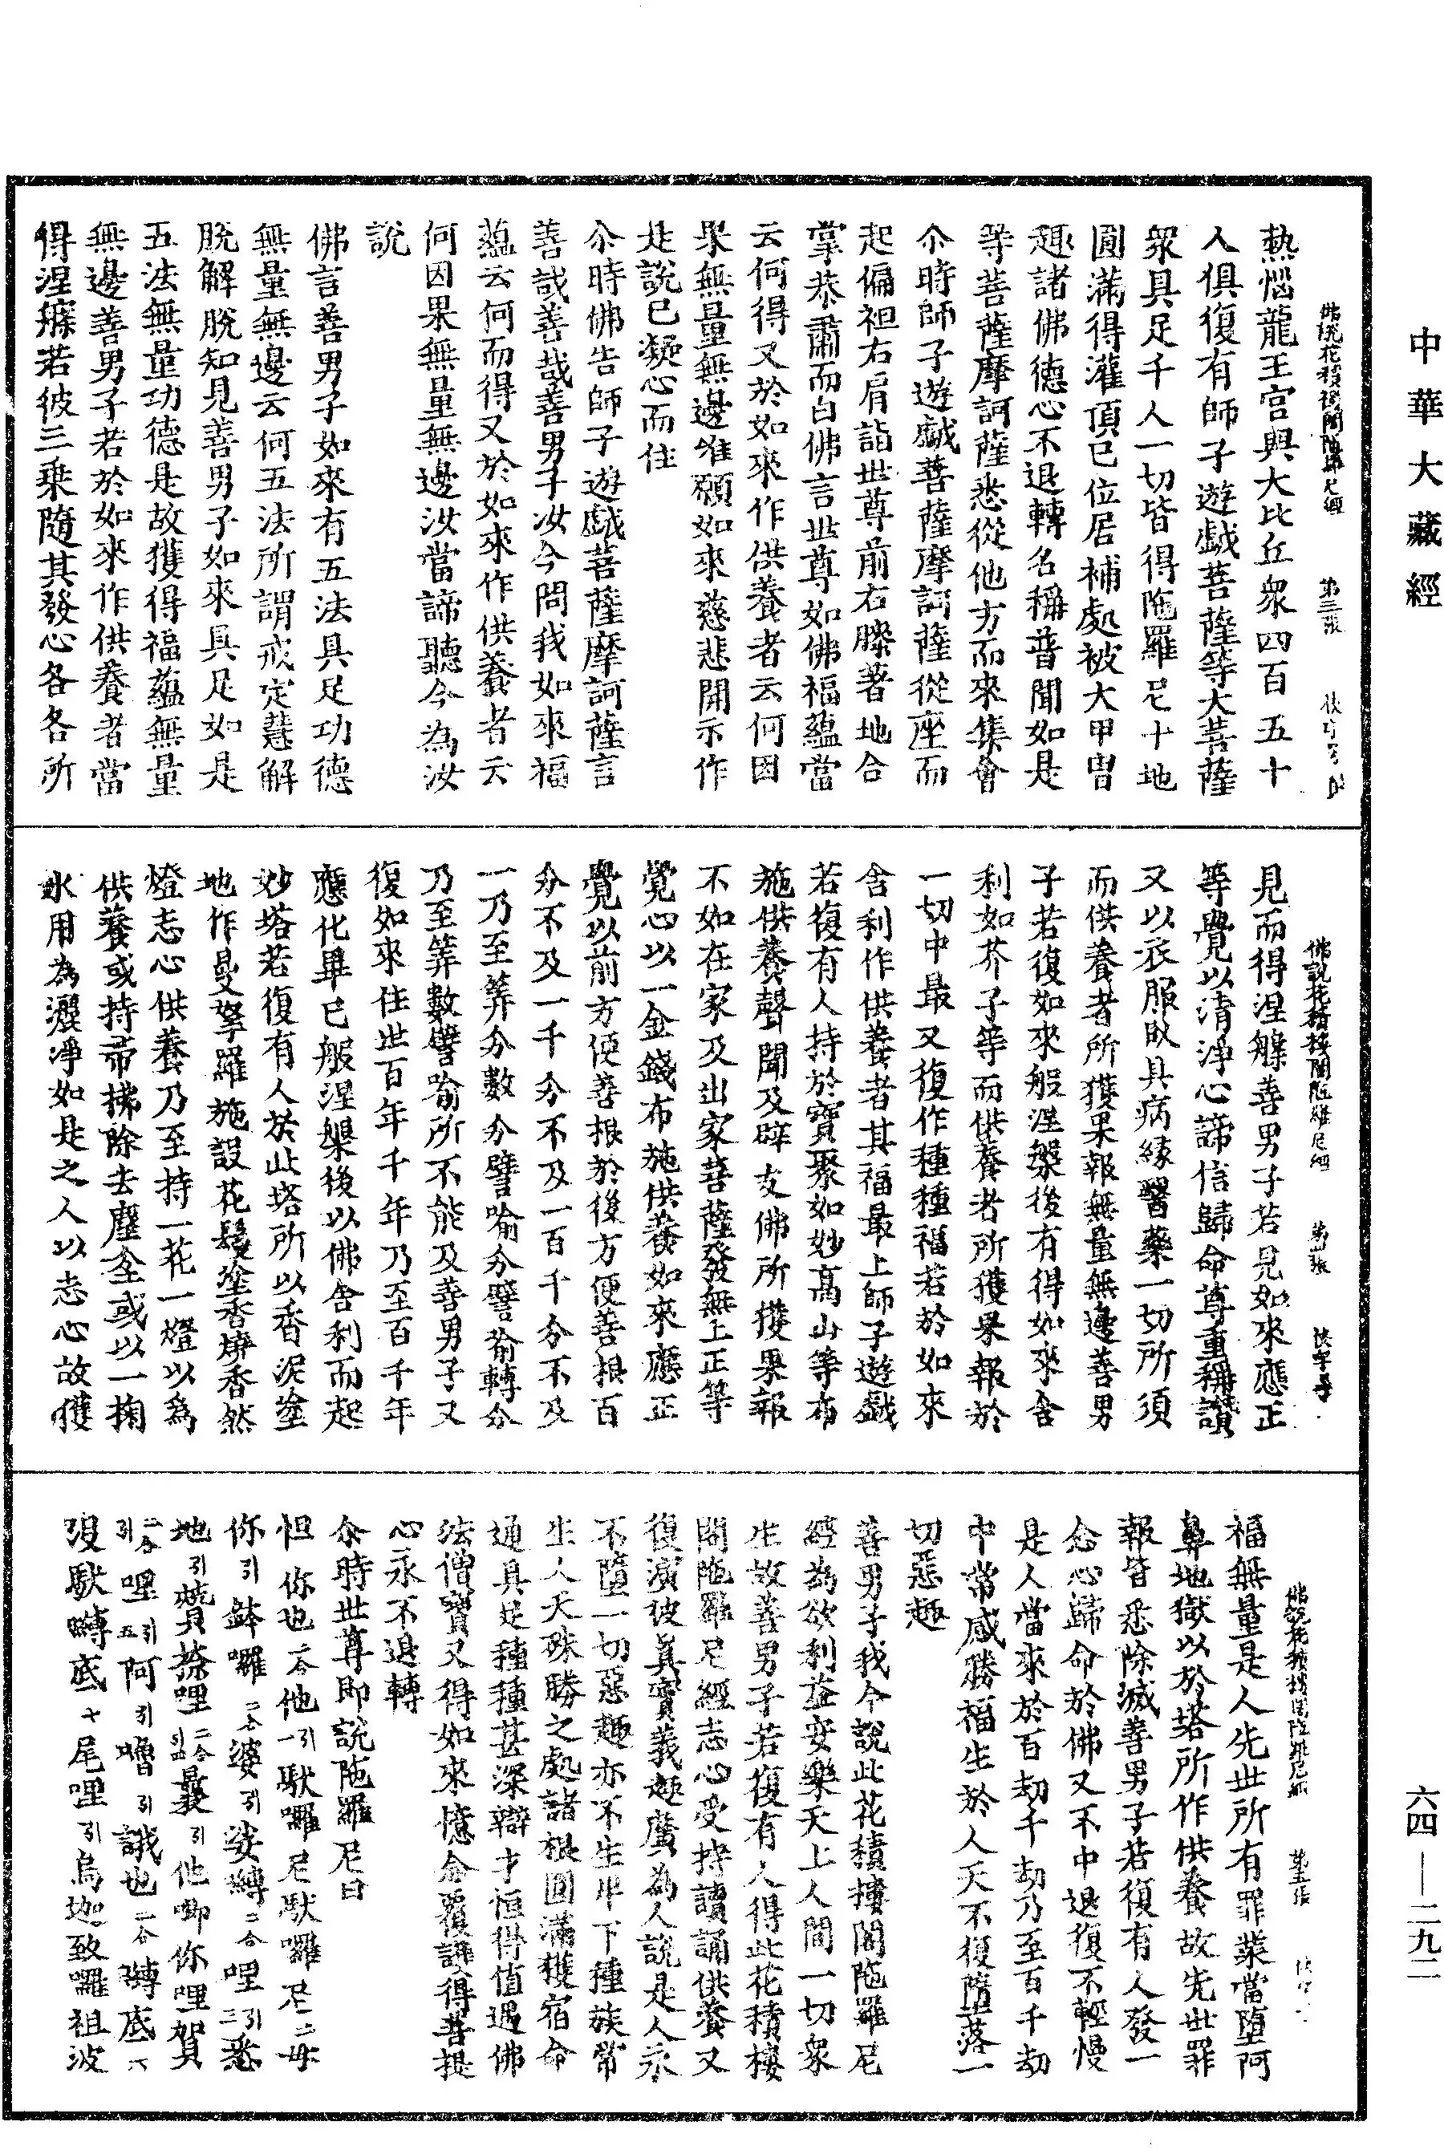 中華大藏經
六四—二九二
佛說花積樓閣陀羅尼經 第三張
熱惱龍王宮與大比丘眾四百五十
人俱復有師子遊戲菩薩等大菩薩
眾具足千人一切皆得陁羅尼十地
圓滿得灌頂已位居補處被大甲冑
趣諸佛德心不退轉名稱普聞如是
等菩薩摩訶薩悉從他方而來集會
尒時師子遊戲菩薩摩訶薩從座而
起偏袒右肩詣世尊前右膝著地合
掌恭肅而白佛言世尊如佛福蘊當
云何得又於如來作供養者云何因
果無量無邊唯願如來慈悲開示作
是說已凝心而住
尒時佛告師子遊戲菩薩摩訶薩言
善哉善哉善男子汝今問我如來福
蘊云何而得又於如來作供養者云
何因果無量無邊汝當諦聽今為汝
說
佛言善男子如來有五法具足功德
無量無邊云何五法所謂戒定慧解
脫解脫知見善男子如來具足如是
五法無量功德是故獲得福蘊無量
無邊善男子若於如來作供養者當
得涅槃若彼三乘隨其發心各各所
佛說花積樓閣陁羅尼經 第四張
見而得涅槃善男子若見如來應正
等覺以清淨心諦信歸命尊重稱讚
又以衣服臥具病緣醫藥一切所須
而供養者所獲果報無量無邊善男
子若復如來般涅槃後有得如來舍
利如芥子等而供養者所獲果報於
一切中最又復作種種福若於如來
舍利作供養者其福最上師子遊戲
若復有人持於寶聚如妙高山等布
施供養聲聞及辟支佛所獲果報
不如在家及出家菩薩發無上正等
覺心以一金錢布施供養如來應正
覺以前方便善根於後方便善根百
分不及一千分不及一百千分不及
一乃至筭分數分譬喻分譬喻轉分
乃至筭數譬喻所不能及善男子又
復如來住世百年千年乃至百千年
應化畢已般涅槃後以佛舍利而起
妙塔若復有人於此塔所以香泥塗
地作曼拏羅施設花鬘塗香燒香然
燈志心供養乃至持一花一燈以為
供養或持帚拂除去塵坌或以一掬
水用為灑淨如是之人以志心故獲
佛說花積樓閣陁羅尼經 第五張
福無量是人先世所有罪業當墮阿
鼻地獄以於塔所作供養故先世罪
報皆悉除滅善男子若復有人發一
念心歸命於佛又不中退復不輕慢
是人當來於百劫千劫乃至百千劫
中常感勝福生於人天不復墮落一
切惡趣
善男子我今說此花積樓閣陁羅尼
經為欲利益安樂天上人間一切眾
生故善男子若復有人得此花積樓
閣陁羅尼經志心受持讀誦供養又
復演彼真實義趣廣為人說是人永
不墮一切惡趣亦不生卑下種族常
生人天殊勝之處諸根圓滿獲宿命
通具足種種甚深辯才恒得值遇佛
法僧寶又得如來憶念覆護得菩提
心永不退轉
尒時世尊即說陁羅尼曰
怛 你也二合他一引馱囉尼馱囉尼二毋
你引鉢囉二合婆引娑縛二合哩三引悉
地引贊捺哩二合四引曩引他唧你哩賀
二合引哩五引阿引嚕引誐也二合嚩底六
沒馱嚩底七尾哩引烏地致囉祖波